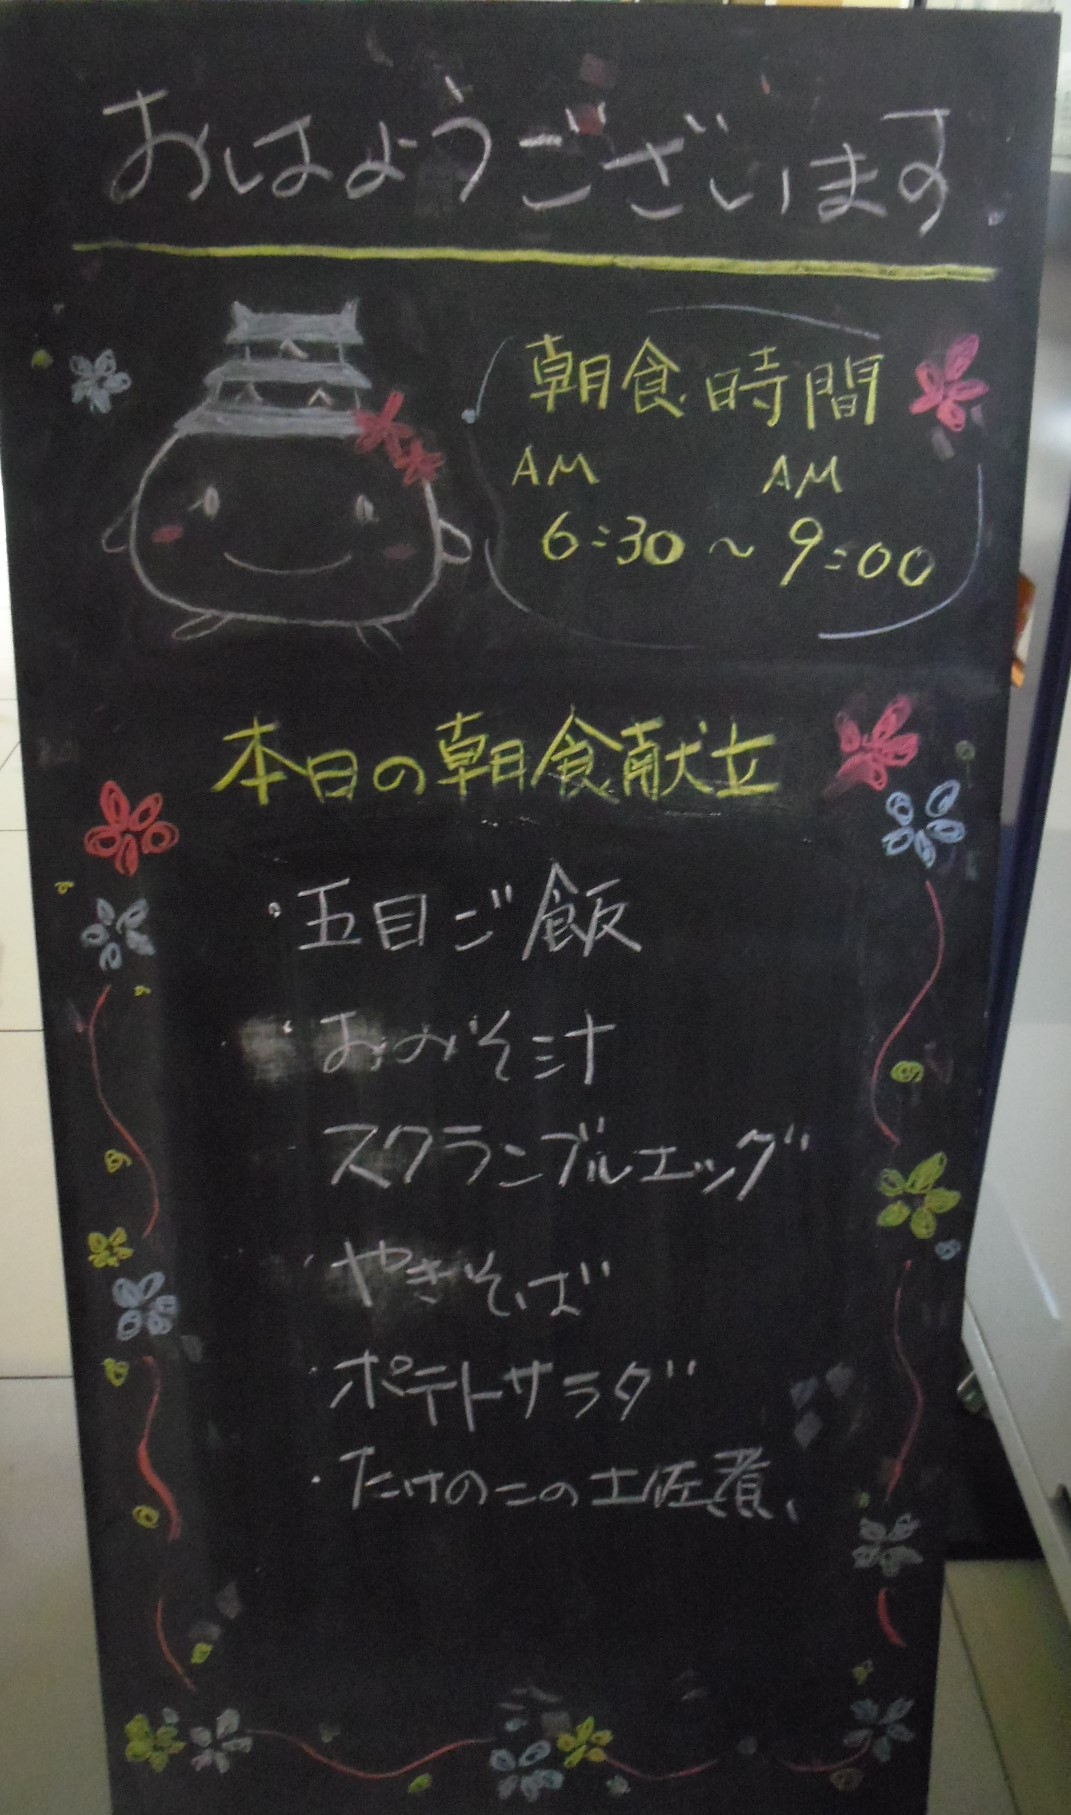 おはようございます
朝食時間
AM AM
6:30~9:00
本日の朝食献立
・五目ご飯
・おみそ汁
・スクランブルエッグ
・やきそば
・ポテトサラダ
・たけのこの土佐煮